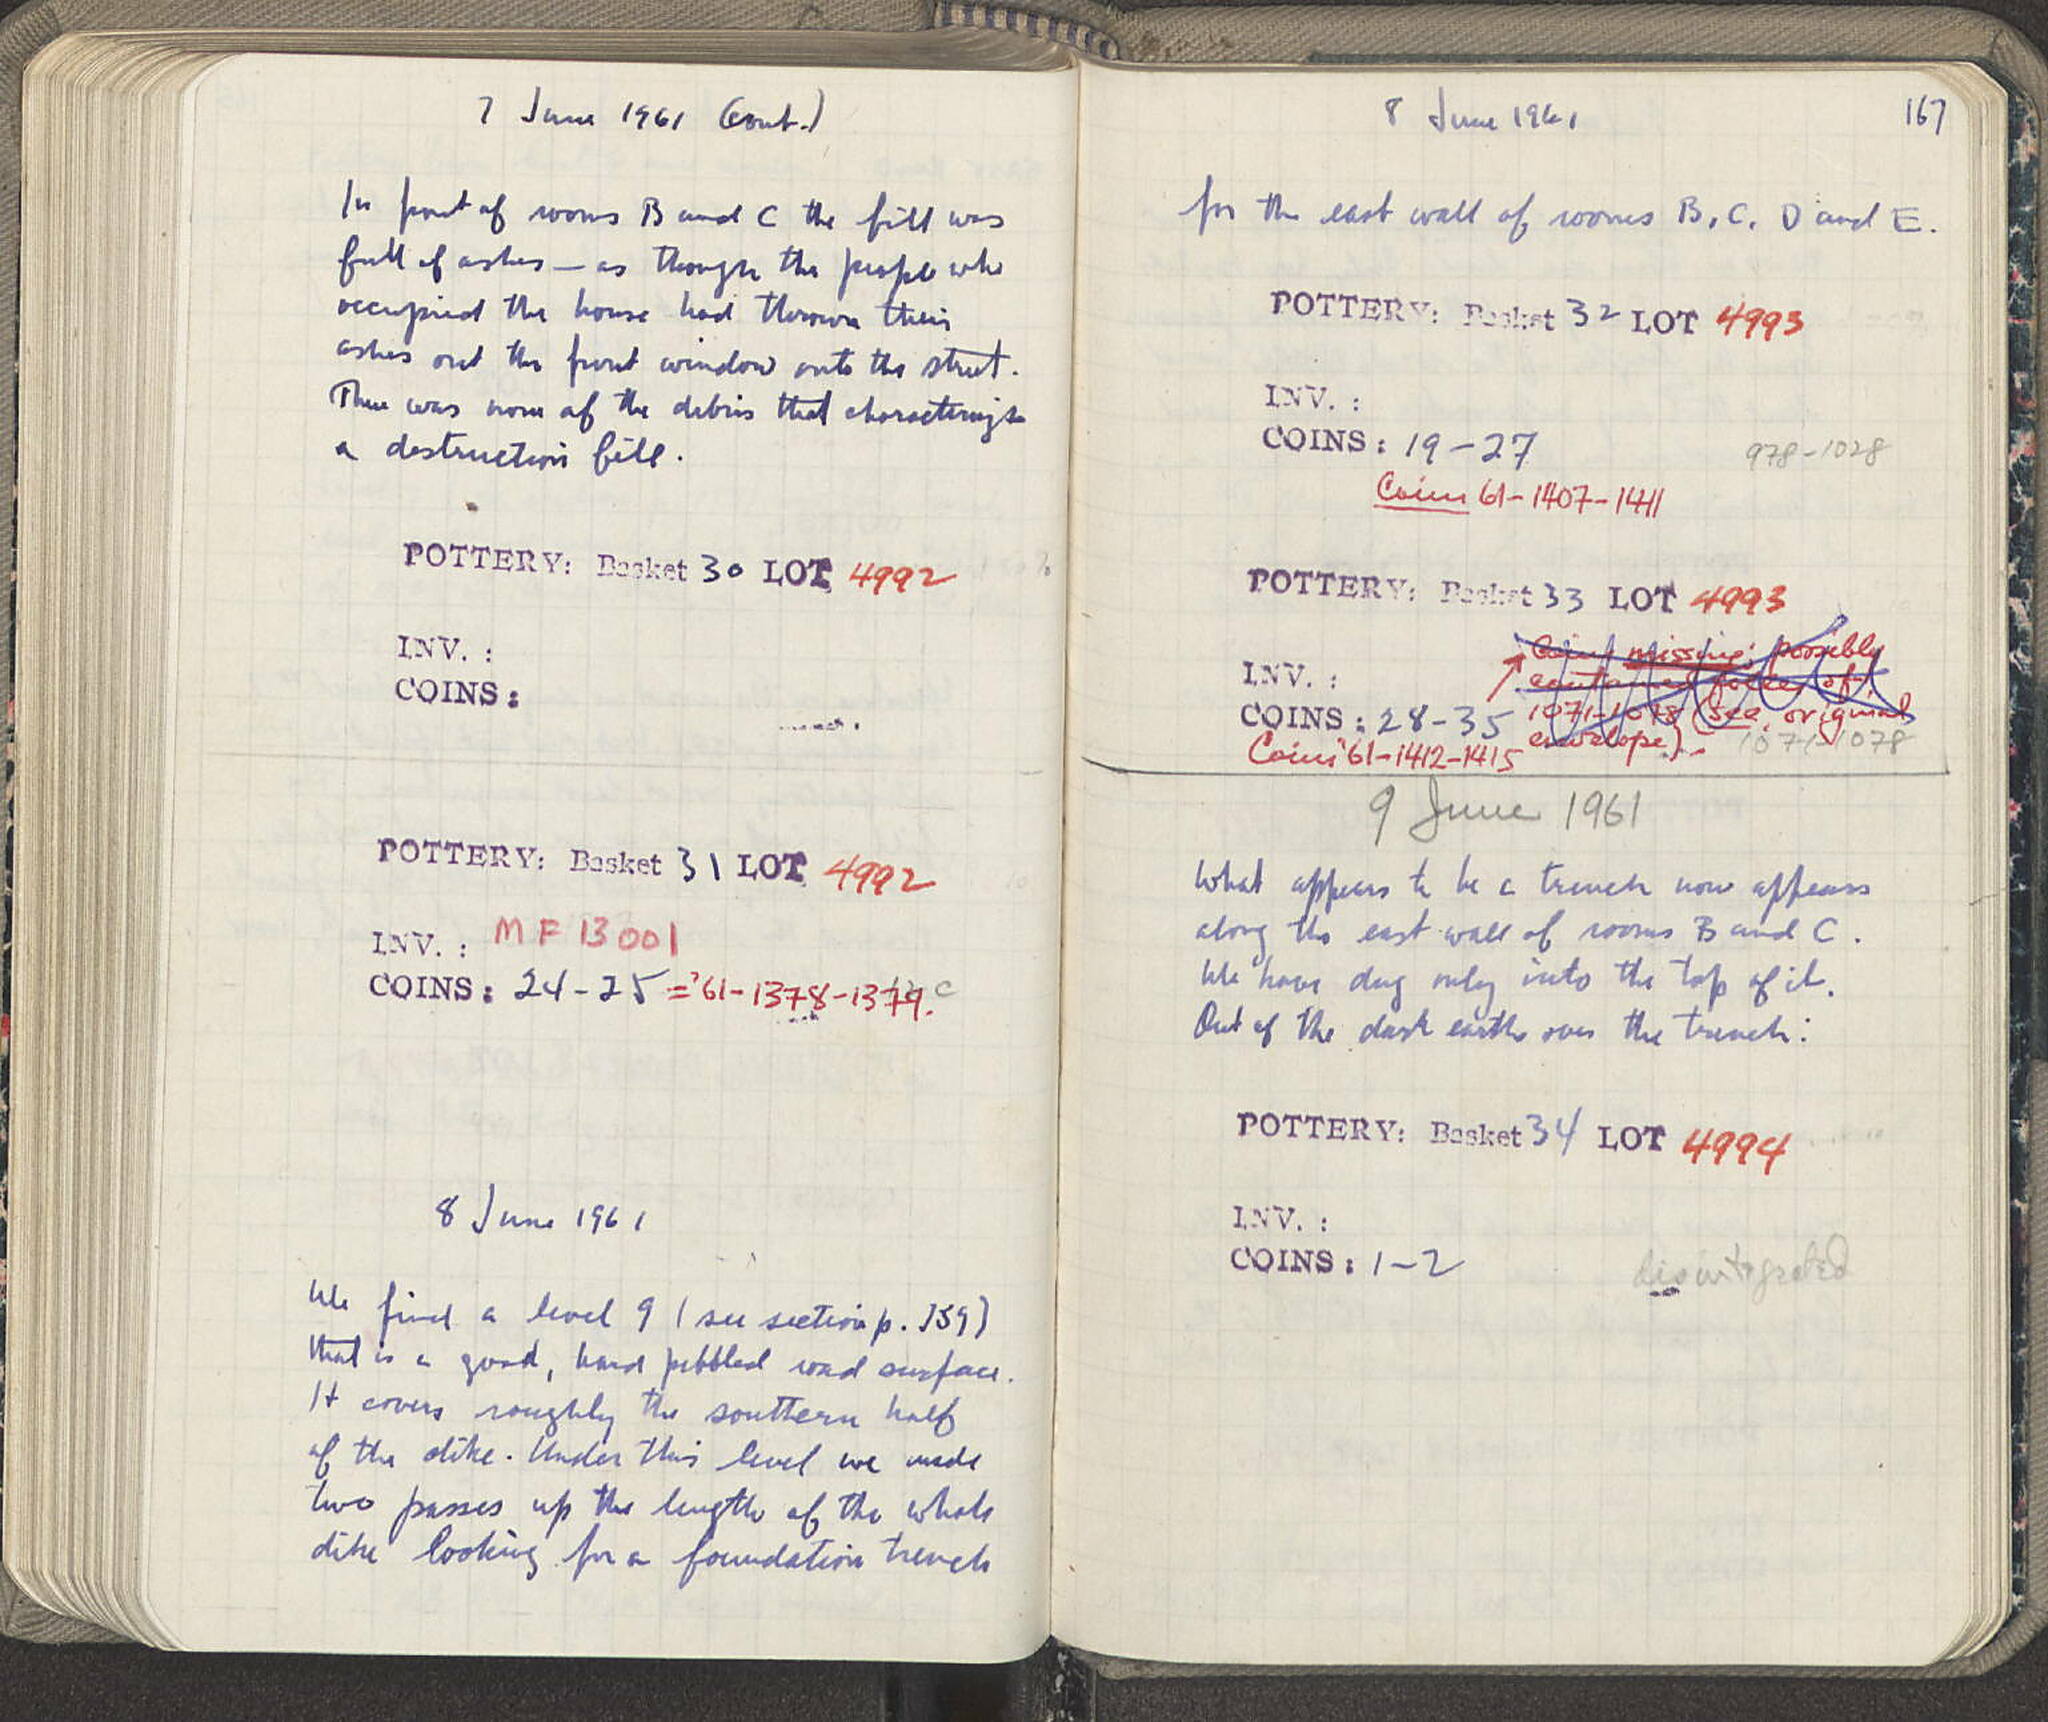 7 June 1961 (cont.)
In front of rooms B and C the fill was
full of ashes — as though the people who
occupied the house had thrown their
ashes out the front window onto the street.
There was none of the debris that characterizes
a destruction fill.
POTTERY: Basket 30 LOT 4992
INV. :
COINS:
POTTERY: Basket 31 LOT 4992
INV. : MF 13001
COINS: 24-25 = '61-1378-1379.
8 June 1961
We find a level 9 (see section p. 159)
that is a good, hard pebbled road surface.
It covers roughly the southern half
of the dike. Under this level we made
two passes up the length of the whole
dike looking for a foundation trench
8 June 1961
167
for the east wall of rooms B, C, D and E.
POTTERY: Basket 32 LOT 4993
INV. :
COINS: 19-27 978-1028
Coins 61-1407-1411
POTTERY: Basket 33 LOT 4993
Coins missing; possibly
INV. : contained
of
COINS: 28-35 1071-1078 (see original
envelope). 1071-1078
Coins '61-1412-1415
9 June 1961
What appears to be a trench now appears
along the east wall of rooms B and C.
We have dug only into the top of it.
Out of the dark earth over the trench:
POTTERY: Basket 34 LOT 4994
INV. :
COINS: 1-2 disintegrated